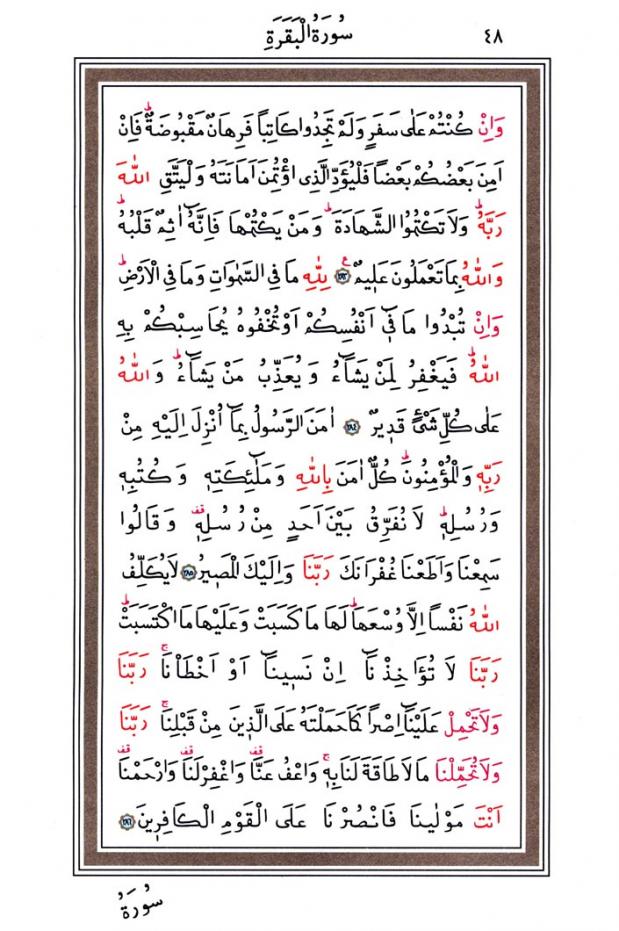 سُورَةُ الْبَقَرَةِ ٤٨
وَاِنْ كُنْتُمْ عَلٰى سَفَرٍ وَلَمْ تَجِدُوا كَاتِباً فَرِهَانٌ مَقْبُوضَةٌۜ فَاِنْ
اَمِنَ بَعْضُكُمْ بَعْضاً فَلْيُؤَدِّ الَّذِي اؤْتُمِنَ اَمَانَتَهُ وَلْيَتَّقِ اللّٰهَ
رَبَّهُۜ وَلَا تَكْتُمُوا الشَّهَادَةَۜ وَمَنْ يَكْتُمْهَا فَاِنَّهُٓ اٰثِمٌ قَلْبُهُۜ
وَاللّٰهُ بِمَا تَعْمَلُونَ عَلٖيمٌ ﴿٢٨٣﴾ لِلّٰهِ مَا فِي السَّمٰوَاتِ وَمَا فِي الْاَرْضِۜ
وَاِنْ تُبْدُوا مَا فٖٓي اَنْفُسِكُمْ اَوْ تُخْفُوهُ يُحَاسِبْكُمْ بِهِ
اللّٰهُۜ فَيَغْفِرُ لِمَنْ يَشَٓاءُ وَيُعَذِّبُ مَنْ يَشَٓاءُۜ وَاللّٰهُ
عَلٰى كُلِّ شَيْءٍ قَدٖيرٌ ﴿٢٨٤﴾ اٰمَنَ الرَّسُولُ بِمَٓا اُنْزِلَ اِلَيْهِ مِنْ
رَبِّهٖ وَالْمُؤْمِنُونَۜ كُلٌّ اٰمَنَ بِاللّٰهِ وَمَلٰٓئِكَتِهٖ وَكُتُبِهٖ
وَرُسُلِهٖۜ لَا نُفَرِّقُ بَيْنَ اَحَدٍ مِنْ رُسُلِهٖ۠ وَقَالُوا
سَمِعْنَا وَاَطَعْنَا غُفْرَانَكَ رَبَّنَا وَاِلَيْكَ الْمَصٖيرُ ﴿٢٨٥﴾ لَا يُكَلِّفُ
اللّٰهُ نَفْساً اِلَّا وُسْعَهَاۜ لَهَا مَا كَسَبَتْ وَعَلَيْهَا مَا اكْتَسَبَتْۜ
رَبَّنَا لَا تُؤَاخِذْنَٓا اِنْ نَسٖينَٓا اَوْ اَخْطَأْنَاۚ رَبَّنَا
وَلَا تَحْمِلْ عَلَيْنَٓا اِصْراً كَمَا حَمَلْتَهُ عَلَى الَّذٖينَ مِنْ قَبْلِنَاۚ رَبَّنَا
وَلَا تُحَمِّلْنَا مَا لَا طَاقَةَ لَنَا بِهٖۚ وَاعْفُ عَنَّا۠ وَاغْفِرْ لَنَا۠ وَارْحَمْنَا۠
اَنْتَ مَوْلٰينَا فَانْصُرْنَا عَلَى الْقَوْمِ الْكَافِرٖينَ ﴿٢٨٦﴾
سُورَةُ